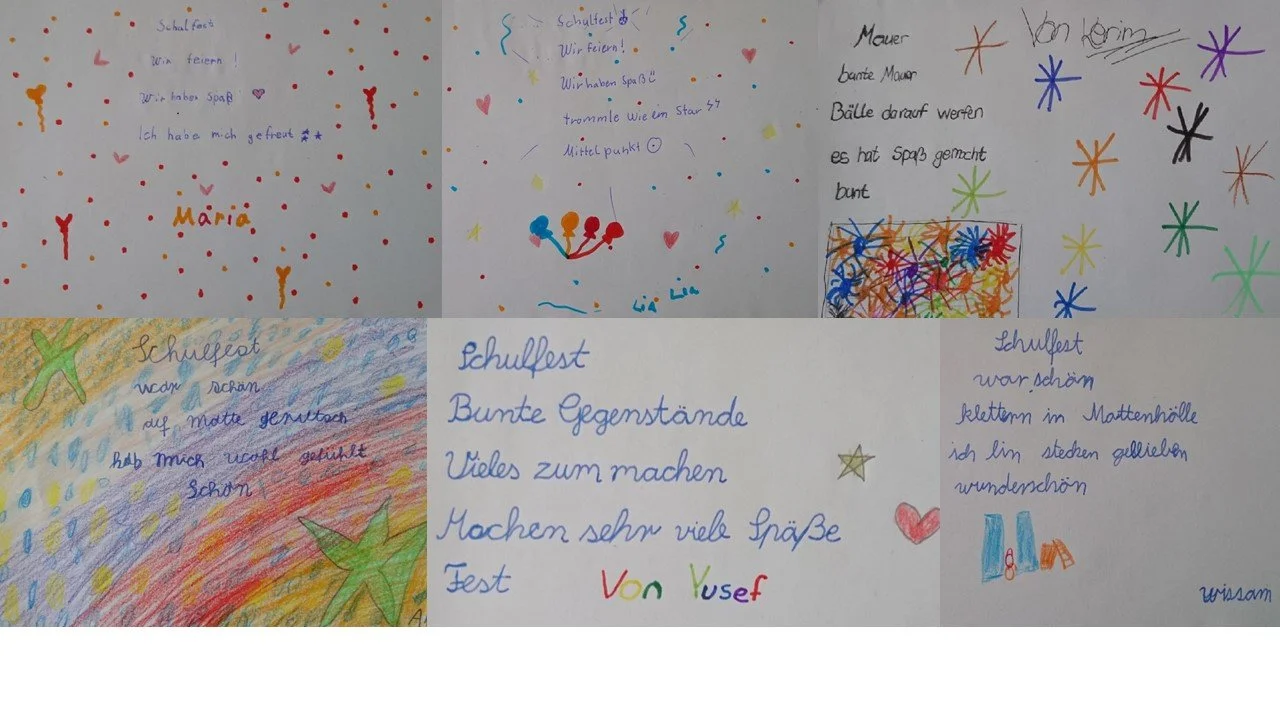 Schulfest
Wir feiern !
Wir haben Spaß
Ich habe mich gefreut
Maria
Schulfest
Wir feiern!
Wir haben Spaß
trommle wie ein Star
Mittelpunkt
Lia Lia
Von Karim
Mauer
bunte Mauer
Bälle darauf werfen
es hat Spaß gemacht
bunt
Schulfest
war schön
auf matte gerutsch
hab mich wohl gefühlt
Schön
A
Schulfest
Bunte Gegenstände
Vieles zum machen
Machen sehr viele Späße
Fest
Von Yusef
Schulfest
war schön
klettern in Mattenhölle
ich bin stecken geblieben
wunderschön
wissam